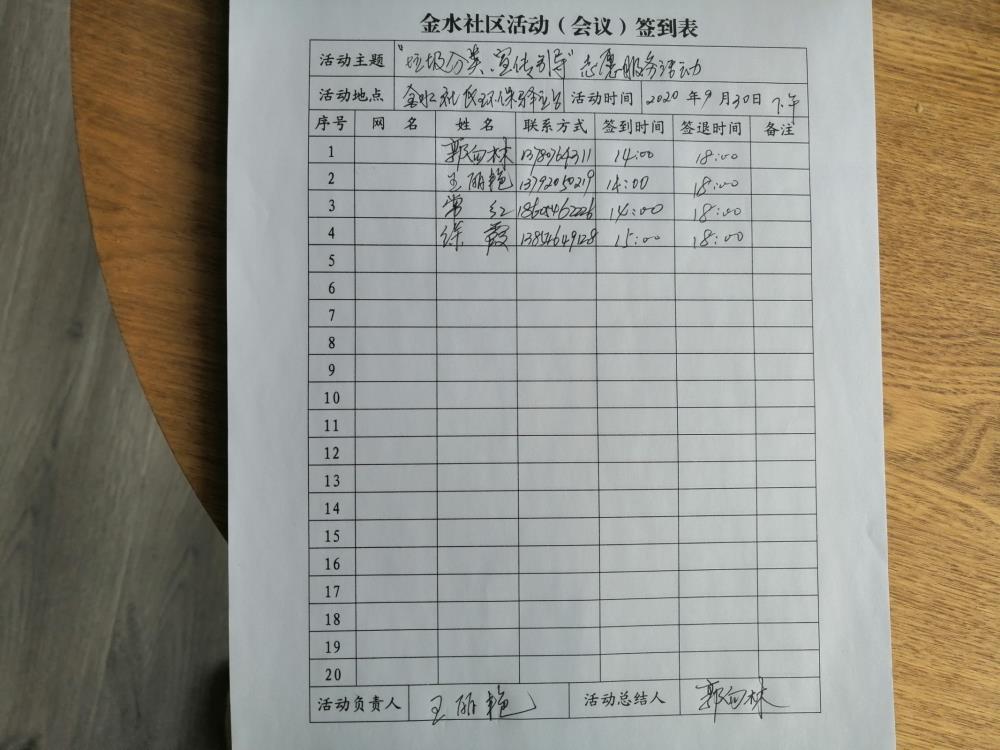 金水社区活动（会议）签到表
活动主题 “垃圾分类、宣传引导”志愿服务活动
活动地点 金水社区环保驿站 活动时间 2020年9月30日下午
序号 网名 姓名 联系方式 签到时间 签退时间 备注
1 郭向林 13780764311 14:00 18:00
2 王丽艳 13792050219 14:00 18:00
3 常红 18605462226 14:00 18:00
4 徐霞 13854649128 15:00 18:00
5
6
7
8
9
10
11
12
13
14
15
16
17
18
19
20
活动负责人 王丽艳 活动总结人 郭向林